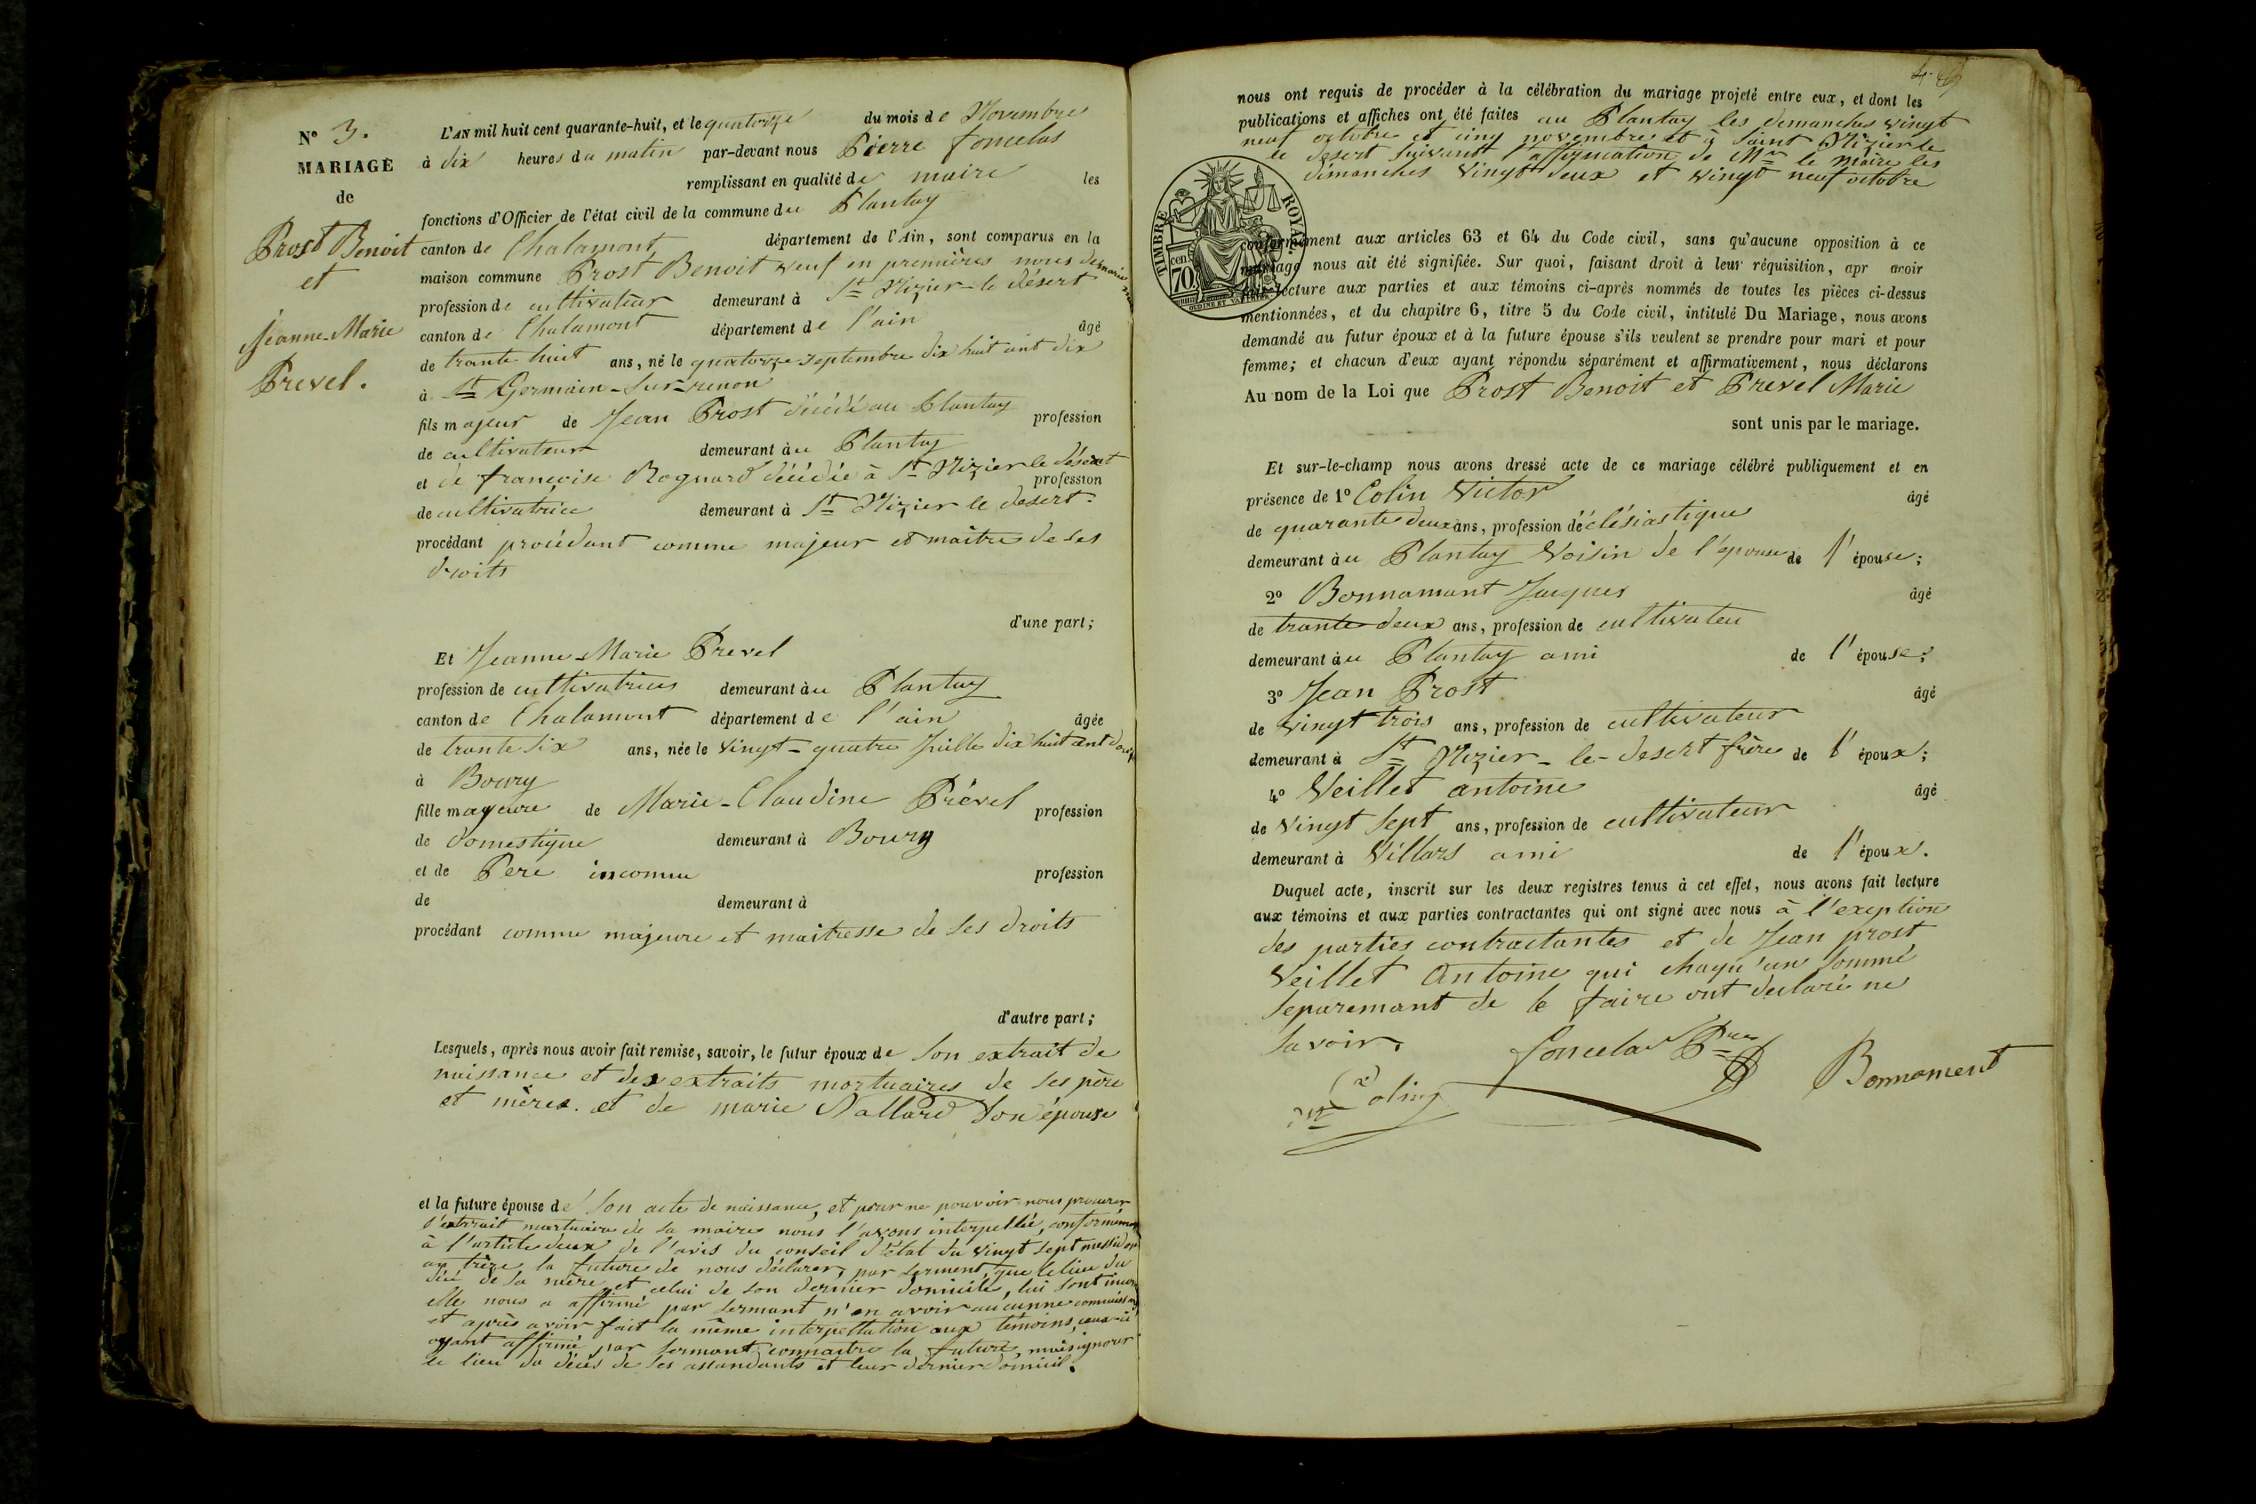 N° 3.
MARIAGE
de
Prost Benoit
et
Jeanne-Marie
Prevel.
L'AN mil huit cent quarante-huit, et le quatorze du mois de Novembre
à dix heures du matin par-devant nous Pierre foncelas
remplissant en qualité de maire les
fonctions d'Officier de l'état civil de la commune du Plantay
canton de Chalamont département de l'Ain, sont comparus en la
maison commune Prost Benoit veuf en premières noces de marie
profession de cultivateur demeurant à St Nizier-le désert
canton de Chalamont département de l'ain âgé
de trante huit ans, né le quatorze septembre dix huit cent dix
à St Germain-sur-renon
fils majeur de Jean Prost décédé au Plantay profession
de cultivateur demeurant àu Plantay
et de françoise Rognard décédée à St Nizier le désert profession
de cultivatrice demeurant à St Nizier le desert.
procédant procédant comme majeur et maître de ses
droits
d'une part;
Et Jeanne-Marie Prevel
profession de cultivatrices demeurant àu Plantay
canton de Chalamont département de l'ain âgée
de trante six ans, née le vingt-quatre Juille dix huit cent douze
à Bourg
fille mayeure de Marie-Claudine Prével profession
de domestique demeurant à Bourg
et de Pere inconnu profession
de demeurant à
procédant comme majeure et maitresse de ses droits
d'autre part;
Lesquels, après nous avoir fait remise, savoir, le futur époux de son extrait de
naissance et des extraits mortuaires de ses père
et mères. et de marie Vallard son épouse
et la future épouse de son acte de naissance, et pour ne pouvoir nous procurer
l'extrait mortuaire de sa maire nous l'avons interpellée, conformément
à l'article deux de l'avis du conseil d'état du vingt sept messidor
an trèze la future de nous déclarer, par serment, que le lieu du
décé de sa mère et celui de son dernier domicile, lui sont inconnu
elle nous a affirmé par sermant n'en avoir aucunne connaissance
et après avoir fait la même interpellation aux témoins, ceux-ci
ayant affirmé par sermant connaitre la future, mais ignorer
le lieu du décès de ses assandants et leur dernier domicil.
nous ont requis de procéder à la célébration du mariage projeté entre eux, et dont les
publications et affiches ont été faites au Plantay les demanches vingt
neuf octobre et cinq novembre et à Saint Nizier le
desert suivant l'affirmation de Mr le maire les
dimanches vingt deux et vingt neuf octobre
TIMBRE ROYAL
70 cen.
conformément aux articles 63 et 64 du Code civil, sans qu'aucune opposition à ce
mariage nous ait été signifiée. Sur quoi, faisant droit à leur réquisition, apr avoir
fait lecture aux parties et aux témoins ci-après nommés de toutes les pièces ci-dessus
mentionnées, et du chapitre 6, titre 5 du Code civil, intitulé Du Mariage, nous avons
demandé au futur époux et à la future épouse s'ils veulent se prendre pour mari et pour
femme; et chacun d'eux ayant répondu séparément et affirmativement, nous déclarons
Au nom de la Loi que Prost Benoit et Prevel Marie
sont unis par le mariage.
Et sur-le-champ nous avons dressé acte de ce mariage célébré publiquement et en
présence de 1° Colin Victor âgé
de quarante deux ans, profession d'éclésiastique
demeurant àu Plantay Voisin de l'epouse de l'épouse;
2° Bonnamant Jacques âgé
de trante deux ans, profession de cultivateu
demeurant àu Plantay ami de l'épouse;
3° Jean Prost âgé
de vingt trois ans, profession de cultivateur
demeurant à St Nizier-le-desert frère de l'époux;
4° Veillet antoine âgé
de vingt sept ans, profession de cultivateur
demeurant à Villars ami de l'époux.
Duquel acte, inscrit sur les deux registres tenus à cet effet, nous avons fait lecture
aux témoins et aux parties contractantes qui ont signé avec nous à l'exeption
des parties contractantes et de Jean prost
Veillet Antoine qui chaqu'un sommé
separemant de le faire ont declaré ne
savoir.
foncelas Pre
Bonnament
Colin